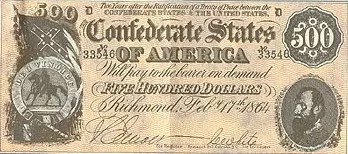 Two Years after the Ratification of a Treaty of Peace between the
CONFEDERATE STATES & THE UNITED STATES.
500 D D 500
Confederate States
No 33546 No 33546
OF AMERICA
Will pay to the bearer on demand
FIVE HUNDRED DOLLARS
Richmond, Feb. 17th 1864